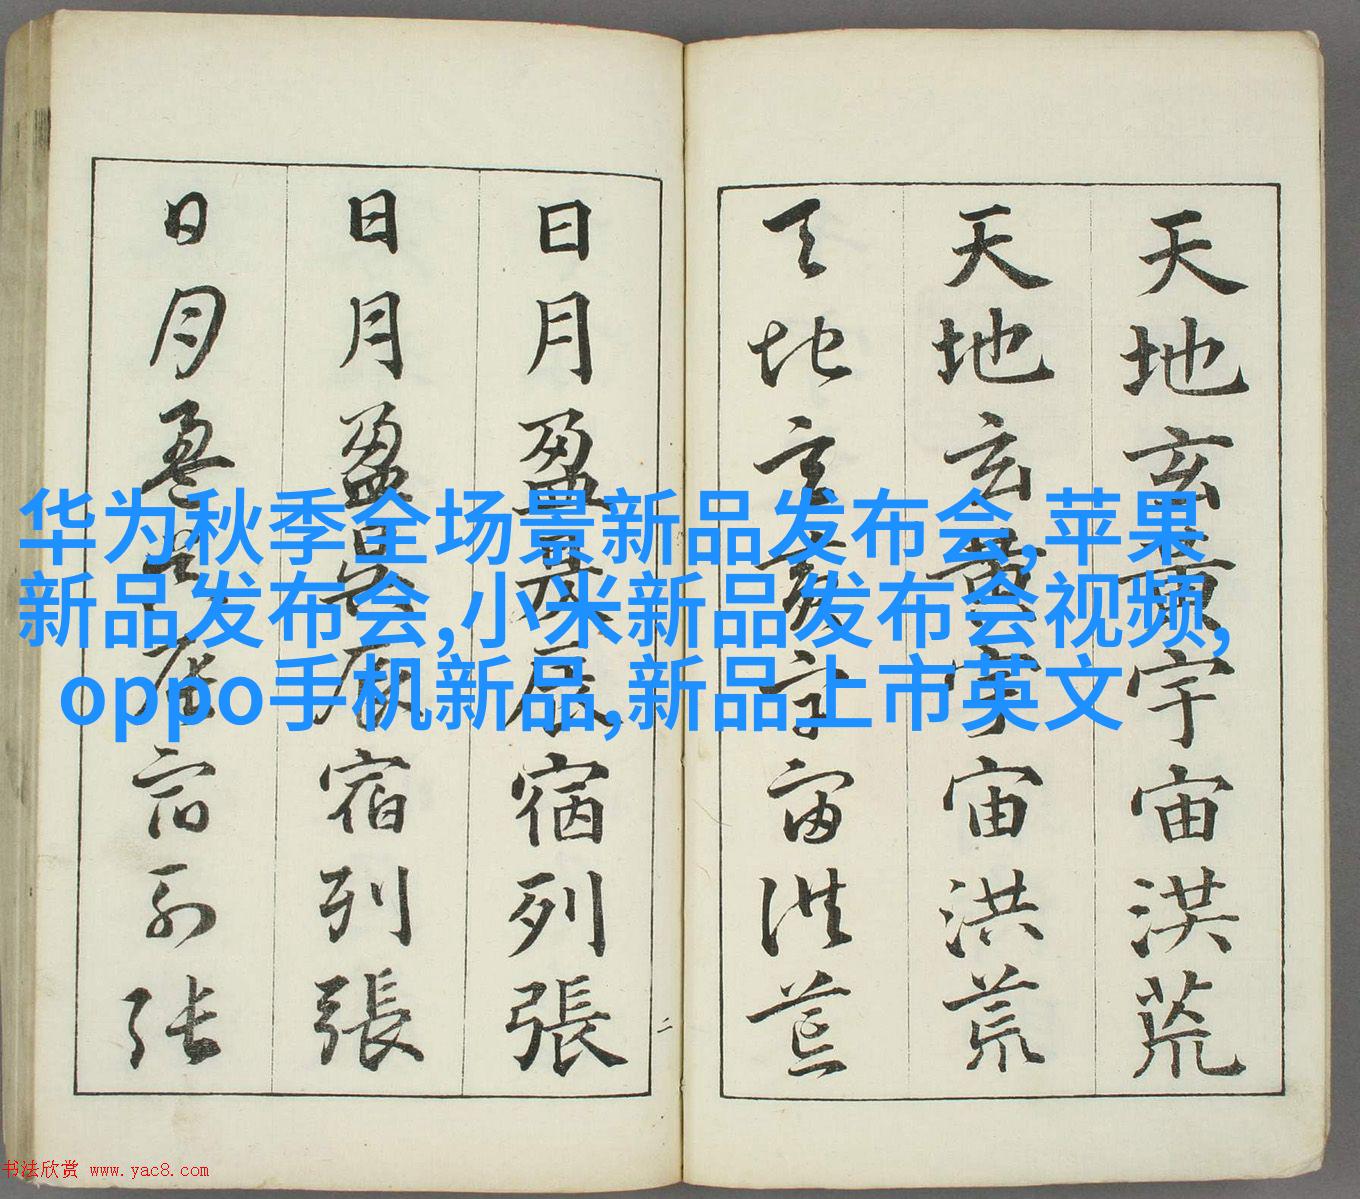 天地玄黃宇宙洪荒
天地玄黃宇宙洪荒
天地玄黃宇宙洪荒
日月盈昃辰宿列張
日月盈昃辰宿列張
日月盈昃辰宿列張
二
华为秋季全场景新品发布会,苹果
新品发布会,小米新品发布会视频,
oppo手机新品,新品上市英文
书法欣赏 www.yac8.com